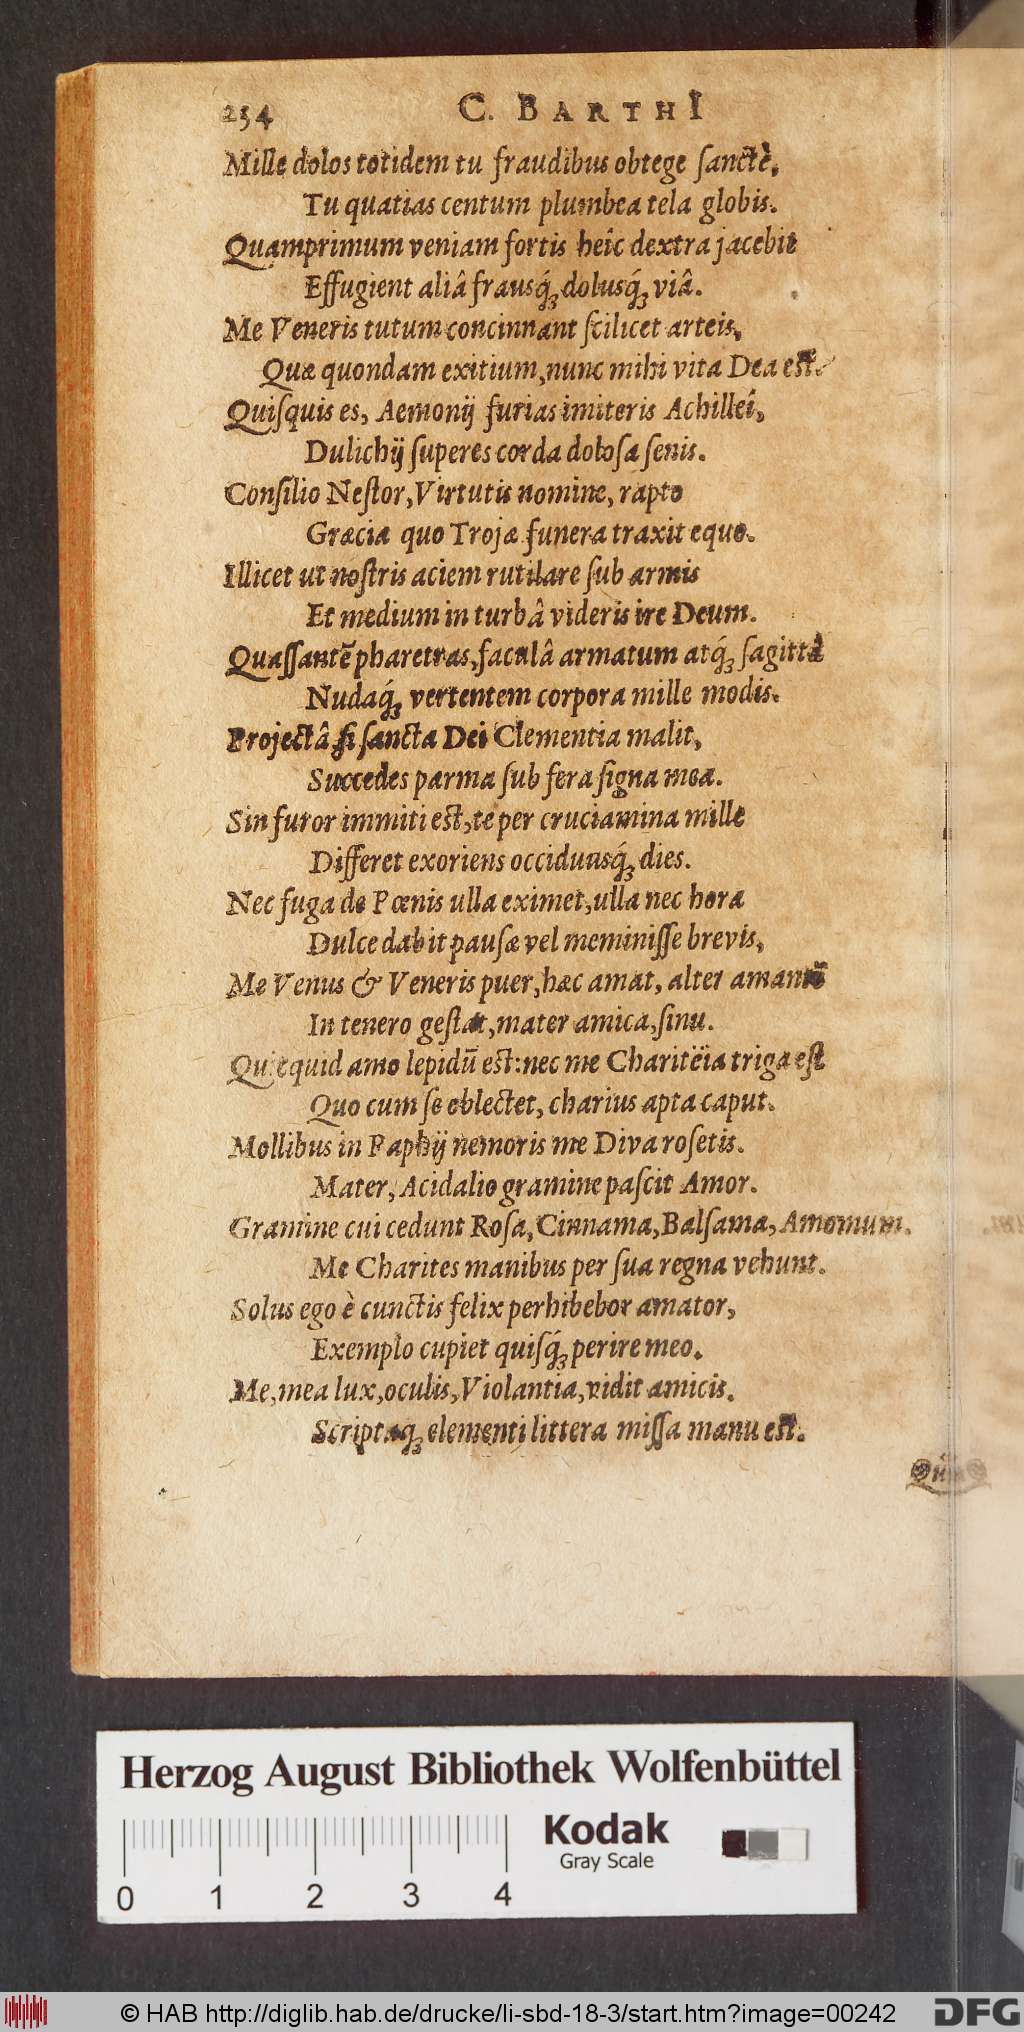 234 C. BARTHI
Mille dolos totidem tu fraudibus obtege sanctè,
Tu quatias centum plumbea tela globis.
Quamprimum veniam fortis heîc dextra jacebit
Effugient aliâ frausq́ꝫ dolusq́ꝫ viâ.
Me Veneris tutum concinnant scilicet arteis,
Quæ quondam exitium, nunc mihi vita Dea est.
Quisquis es, Aemonij furias imiteris Achilleî,
Dulichij superes corda dolosa senis.
Consilio Nestor, Virtutis nomine, rapto
Græcia quo Trojæ funera traxit equo.
Illicet ut nostris aciem rutilare sub armis
Et medium in turbâ videris ire Deum.
Quassantē pharetras, faculâ armatum atq́ꝫ sagittâ
Nudaq́ꝫ vertentem corpora mille modis.
Projectâ si sancta Dei Clementia malit,
Succedes parma sub fera signa mea.
Sin furor immiti est, te per cruciamina mille
Differet exoriens occiduusq́ꝫ dies.
Nec fuga de Pœnis ulla eximet, ulla nec hora
Dulce dabit pausæ vel meminisse brevis,
Me Venus & Veneris puer, hæc amat, alter amantē
In tenero gestat, mater amica, sinu.
Quicquid amo lepidū est: nec me Charitëia triga est
Quo cum se oblectet, charius apta caput.
Mollibus in Paphij nemoris me Diva rosetis.
Mater, Acidalio gramine pascit Amor.
Gramine cui cedunt Rosa, Cinnama, Balsama, Amomum.
Me Charites manibus per sua regna vehunt.
Solus ego è cunctis felix perhibebor amator,
Exemplo cupiet quisq́ꝫ perire meo.
Me, mea lux, oculis, Violantia, vidit amicis.
Scriptaqꝫ elementi littera missa manu est.
Herzog August Bibliothek Wolfenbüttel
0 1 2 3 4
Kodak
Gray Scale
© HAB http://diglib.hab.de/drucke/li-sbd-18-3/start.htm?image=00242
DFG